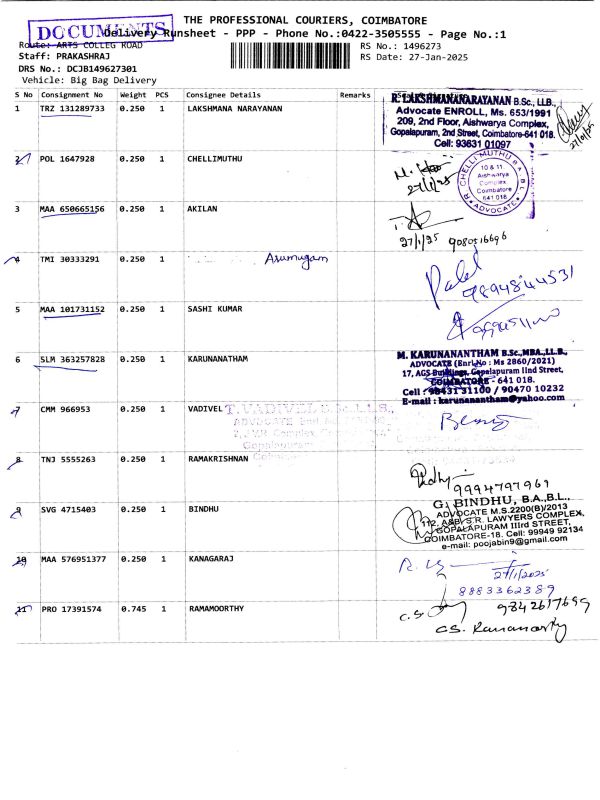 THE PROFESSIONAL COURIERS, COIMBATORE
DOCUMENTS
Delivery Runsheet - PPP - Phone No.:0422-3505555 - Page No.:1
Route: ARTS COLLEG ROAD
RS No.: 1496273
Staff: PRAKASHRAJ
RS Date: 27-Jan-2025
DRS No.: DCJB149627301
Vehicle: Big Bag Delivery
S No Consignment No Weight PCS Consignee Details Remarks
1 TRZ 131289733 0.250 1 LAKSHMANA NARAYANAN
R. LAKSHMANANARAYANAN B.Sc., LLB.,
Advocate ENROLL, Ms. 653/1991
209, 2nd Floor, Aishwarya Complex,
Gopalapuram, 2nd Street, Coimbatore-641 018.
Cell: 93631 01097
27/01/25
2 POL 1647928 0.250 1 CHELLIMUTHU
27/1/25
CHELLIMUTHU B.A., B.L.
10 & 11
Aishwarya
Complex
Coimbatore
641 018
ADVOCATE
3 MAA 650665156 0.250 1 AKILAN
27/1/25 9080516696
4 TMI 30333291 0.250 1 Arumugam
9894844531
5 MAA 101731152 0.250 1 SASHI KUMAR
6 SLM 363257828 0.250 1 KARUNANATHAM
M. KARUNANANTHAM B.Sc.,MBA.,LL.B.,
ADVOCATE (Enrl.No : Ms 2860/2021)
17, AGS Buildings, Gopalapuram IInd Street,
COIMBATORE - 641 018.
Cell : 98431 31100 / 90470 10232
E-mail : karunanantham@yahoo.com
7 CMM 966953 0.250 1 VADIVEL
T. VADIVEL B.Sc., L.L.B.,
ADVOCATE
Gopalapuram
8 TNJ 5555263 0.250 1 RAMAKRISHNAN
9994797969
9 SVG 4715403 0.250 1 BINDHU
G. BINDHU, B.A.,B.L.,
ADVOCATE M.S.2200(B)/2013
112, A&B, S.R. LAWYERS COMPLEX,
GOPALAPURAM IIIrd STREET,
COIMBATORE-18. Cell: 99949 92134
e-mail: poojabin9@gmail.com
10 MAA 576951377 0.250 1 KANAGARAJ
27/1/2025
8883362389
11 PRO 17391574 0.745 1 RAMAMOORTHY
9842617699